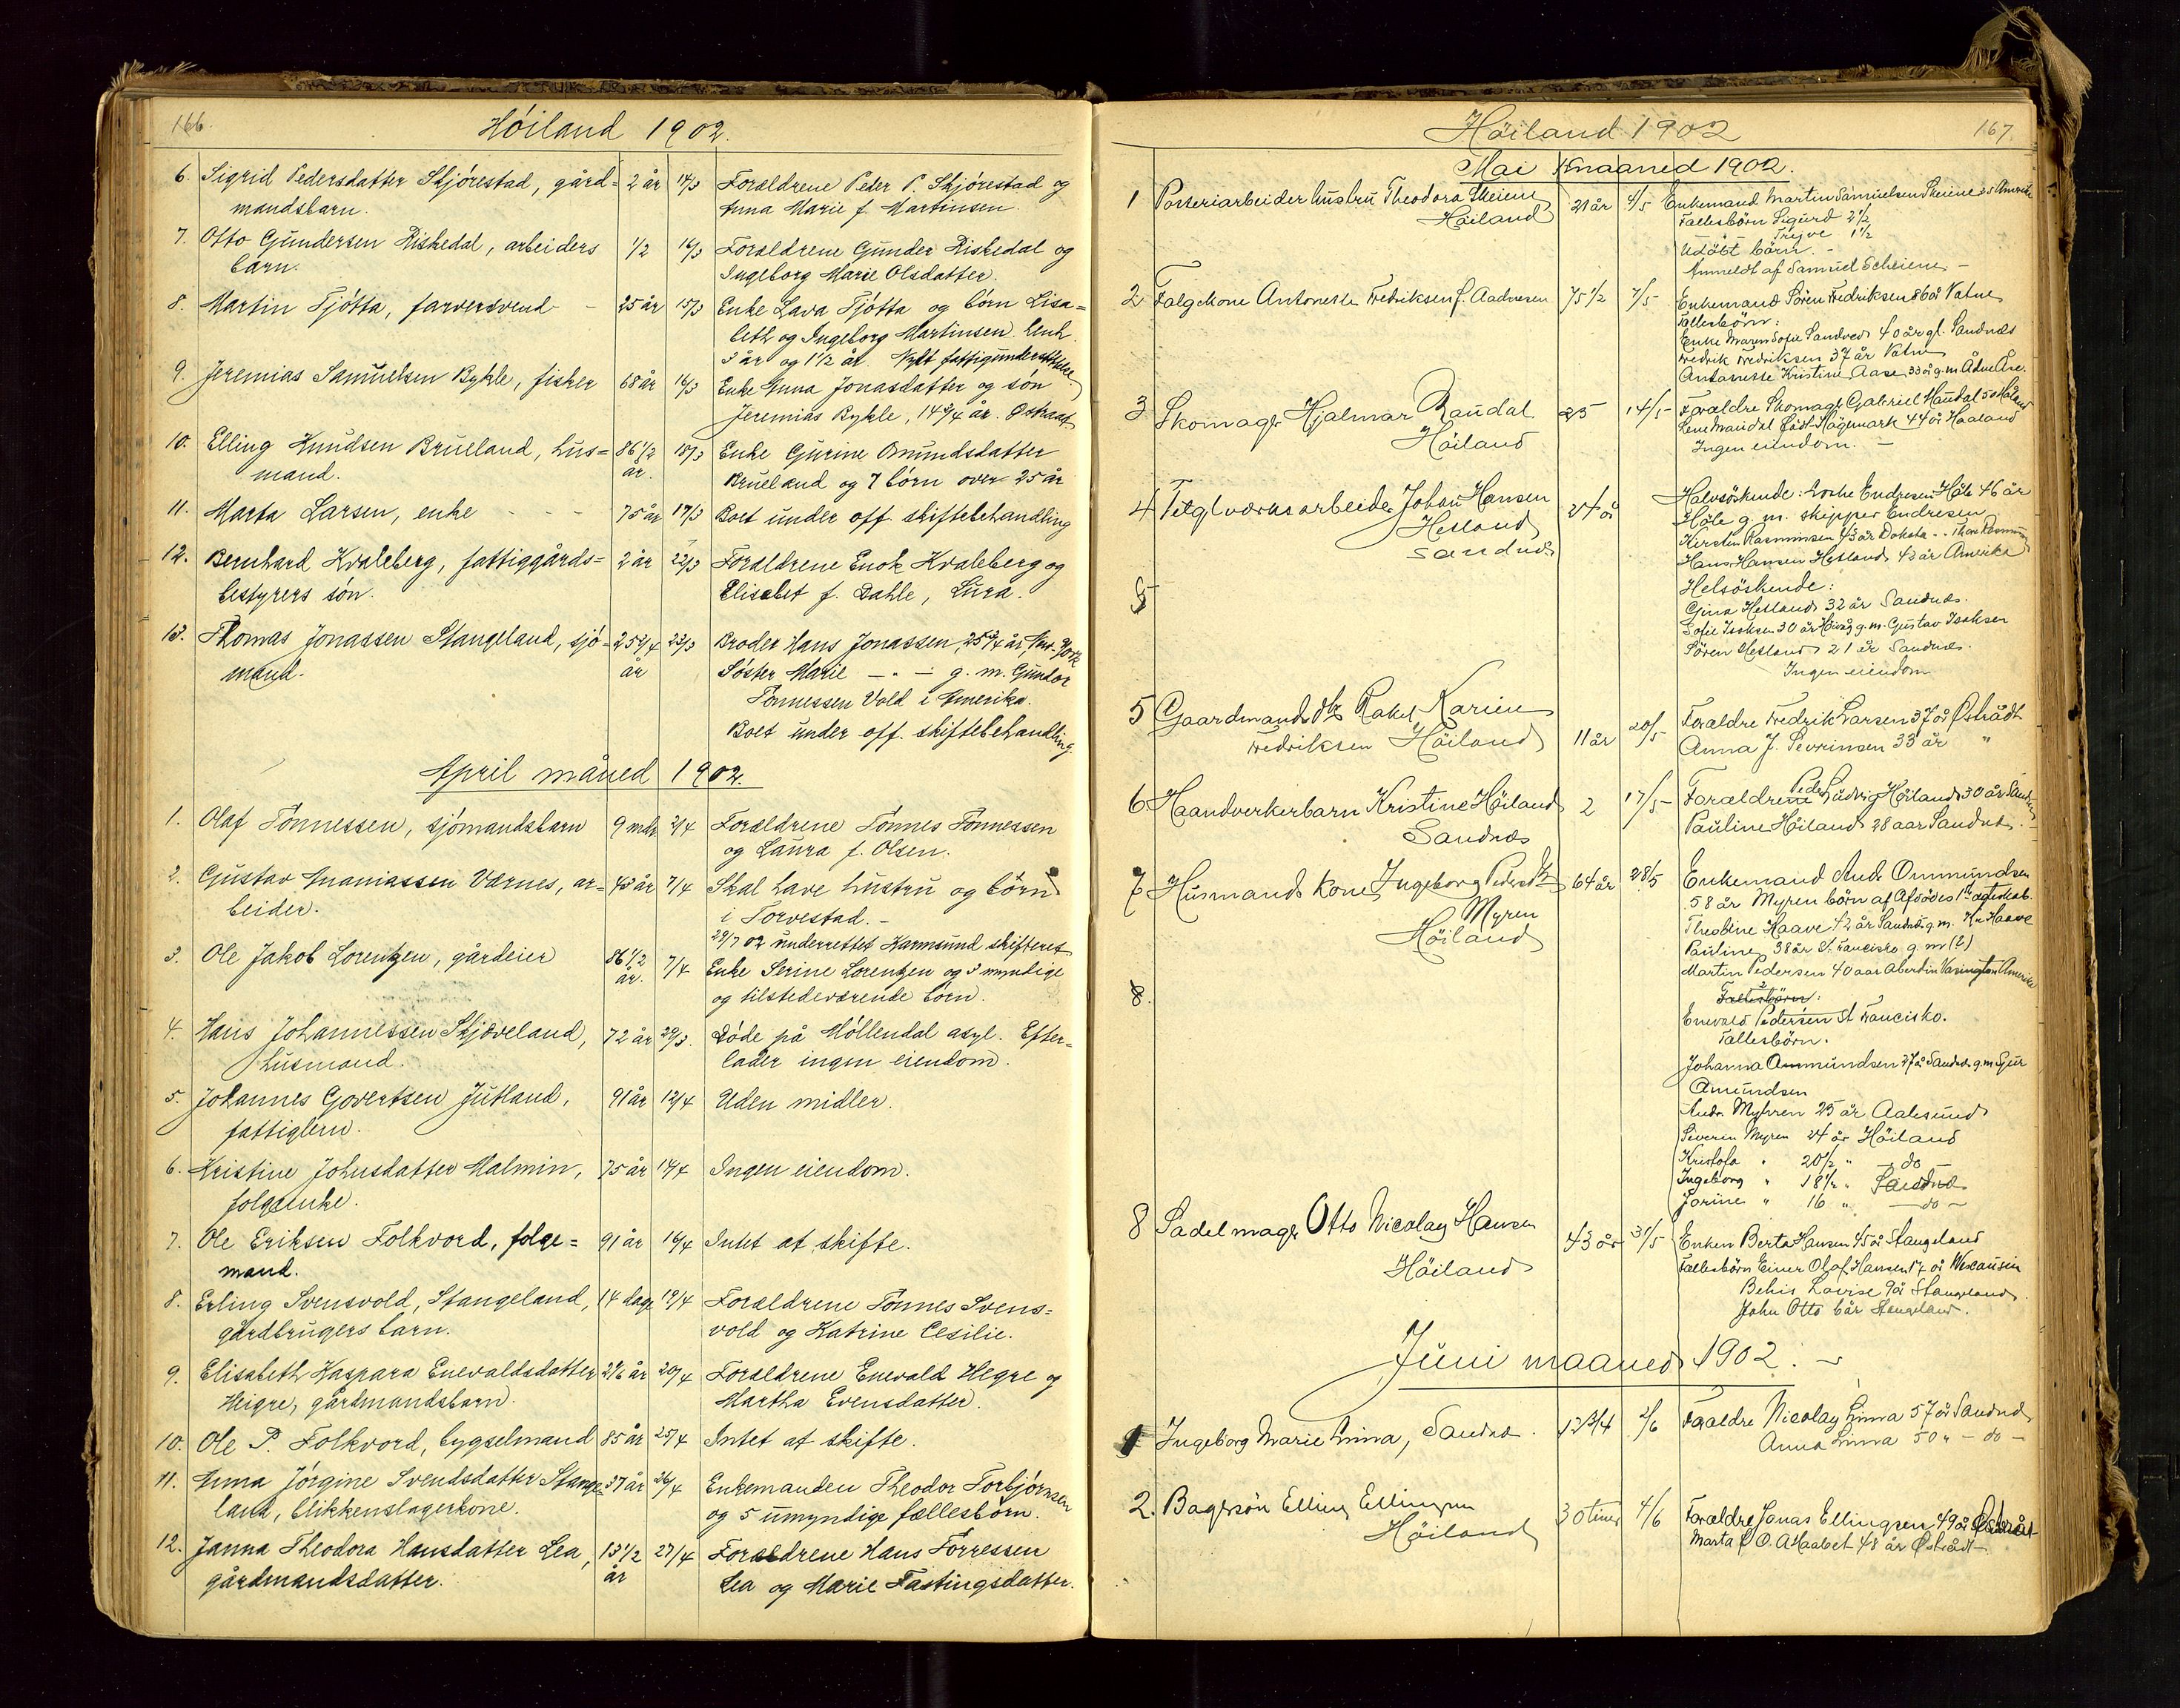 166.
Höiland 1902.
6. Sigrid Pedersdatter Skjörestad, gård= 2 år 14/3 Forældrene Peder P. Skjörestad og
mandsbarn. Anna Marie f. Martinsen
7. Otto Gundersen Riskedal, arbeiders 1/2 16/3 Forældrene Gunder Riskedal og
barn. Ingeborg Marie Olsdatter.
8. Martin Tjötta, farversvend - 25 år 15/3 Enke Lava Tjötta og börn Lisa=
beth og Ingeborg Martinsen
3 år og 1 1/2 år. Nydt fattigunderstöttelse
9. Jeremias Samuelsen Bykle, fisker 68 år 16/3 Enke Anna Jonasdatter og sön
Jeremias Bykle, 14 3/4 år. Östraat
10. Elling Knudsen Brueland, hus= 86 1/2 18/3 Enke Gurine Omundsdatter
mand. år. Brueland og 7 börn over 25 år
11. Marta Larsen, enke - - - 75 år 17/3 Boet under off. skiftebehandling
12. Bernhard Kvaleberg, fattiggårds= 2 år 22/3 Forældrene Enok Kvaleberg og
bestyrers sön. Elisabet f. Dahle, Lura.
13. Thomas Jonassen Stangeland, sjö= 25 3/4 23/3 Broder Hans Jonassen, 25 3/4 år, New-York
mand. år Söster Marie - " - g. m. Gundor
Tönnessen Vold i Amerika.
Boet under off. skiftebehandling.
April måned 1902.
1. Olaf Tönnessen, sjömandsbarn 9 mdr 2/4 Forældrene Tönnes Tönnessen
og Laura f. Olsen.
2. Gustav Ananiassen Værnes, ar= 43 år 7/4 Skal have hustru og börn
beider. i Torvestad. -
29/7 02 underrettet Karmsund skifteret
3. Ole Jakob Lorentzen, gårdeier 86 1/2 7/4 Enke Serine Lorentzen og 3 myndige
år. og tilstedeværende börn.
4. Hans Johannessen Skjæveland, 72 år 29/3. Döde på Möllendal asyl. Efter=
husmand. lader ingen eiendom.
5. Johannes Govertsen Jutland, 91 år 12/4 Uden midler.
fattiglem.
6. Kristine Johnsdatter Malmin, 75 år 14/4 Ingen eiendom.
folgeenke.
7. Ole Eriksen Folkvord, folge= 91 år 16/4 Intet at skifte.
mand.
8. Erling Svensvold, Stangeland, 14 dage 19/4 Forældrene Tönnes Svens=
gårdbrugers barn. vold og Katrine Cesilie.
9. Elisabeth Kaspara Enevaldsdatter 2 1/6 år 20/4 Forældrene Enevald Hegre og
Heigre, gårdmandsbarn. Martha Evensdatter.
10. Ole P. Folkvord, bygselmand 85 år 25/4 Intet at skifte.
11. Anna Jörgine Svendsdatter Stange= 37 år 26/4 Enkemanden Theodor Torbjörnsen
land, blikkenslagerkone. og 5 umyndige fællesbörn.
12. Janna Theodora Hansdatter Lea, 13 1/2 27/4 Forældrene Hans Torressen
gårdmandsdatter. år Lea og Marie Fastingsdatter.
Höiland 1902
167.
Mai maaned 1902.
1 Potteriarbeider hustru Theodora Skeiene 21 år 4/5 Enkemand Martin Samuelsen Skeiene 25 Amerika
Höiland Fallesbörn Sigurd 2 1/2
- " - Trejve 1 1/2
Udöbt barn. -
Anmeldt af Samuel Scheiene -
2 Falgekone Antonette Fredriksen f. Aadnesen 75 1/2 7/5 Enkemand Sören Fredriksen 86 år Vatne
Fallesbörn:
Enke Maren Sofie Sandved 40 år gl. Sandnæs
Fredrik Fredriksen 37 år Vatne
Antonette Kristine Aase 33 år g. m. Ådne Åse.
3 Skomager Hjalmar Raudal 25 14/5 Forældre Skomager Gabriel Maudal 50 Håland
Höiland Lene Maudal född Hägemark 44 år Haaland
Ingen eiendom. -
4 Teglværksarbeider Johan Hansen 24 år Halvsöskende: Endresen Håle 46 år
Hetland Håle g. m. skipper Endresen
Sandnes Kirsten Rasmussen 43 år Dakota
Hans Hansen Hetland 42 år Amerika
Helsöskende:
5 Gina Hetland 32 år Sandnæs.
Sofie Isaksen 30 år g. m. Gustav Isaksen
Sören Hetland 21 år Sandnæs.
Ingen eiendom
5 Gaardmands dtr Rakel Karine 11 år 20/5 Forældre Fredrik Larsen 37 år Östrådt
Fredriksen Höiland Anna J. Sevrinsen 33 år "
6 Haandverkerbarn Kristine Höiland 2 17/5 Forældrene Peder Ludvig Höiland 30 år Sandnes
Sandnæs Pauline Höiland 28 aar Sandnæs.
7 Husmands Kone, Ingeborg Pedersdtr 64 år 28/5 Enkemand Andr. Ommundsen
Myren 58 år Myren börn af Afdödes 1te ægteskab.
Höiland Theoline Haave 42 år Sandnæs g. m. Haave
Pauline 38 år St. Francisko g m (?)
Martin Pedersen 40 aar Aberdin Vasington Amerika
8. Fællesbörn:
Enevald Pedersen St Francisko.
Fallesbörn.
Johanna Ommundsen 27 år Sandnæs g. m. Sjur
Amundsen
Andr. Myhren 25 år Aalesund
Severin Myren 24 år Höiland
Kristofa " 20 1/2 " - do -
Ingeborg " 18 1/2 " Sandnæs
Jorine " 16 " - do -
8 Sadelmager Otto Nicolay Hansen 43 år 31/5 Enken Berta Hansen 45 år Stangeland
Höiland Fællesbörn Einer Olaf Hansen 17 år Wescansin
Louise 9 år Stangeland.
John Otto 6 år Stangeland.
Juni maaned 1902. -
1 Ingeborg Marie Lima, Sandnæs. 13 3/4 2/6 Forældre Nicolay Lima 57 år Sandnæs
Anna Lima 50 " - do -
2. Bagersön Elling Ellingsen 30 timer 4/6 Forældre Jonas Ellingsen 49 år Östråt
Höiland Marta f O. A Haabet 48 år Östrådt